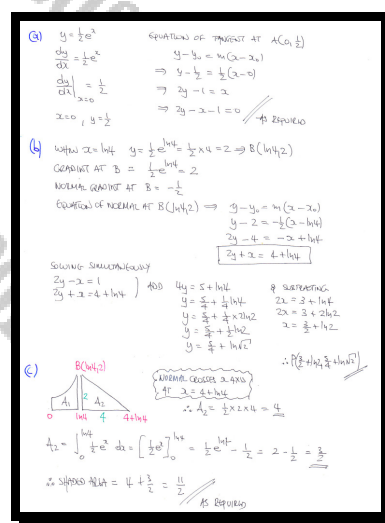 (a) y = ½eˣ
dy/dx = ½eˣ
dy/dx |ₓ₌₀ = ½
x=0, y=½
EQUATION OF TANGENT AT A(0,½)
y - y₀ = m(x - x₀)
⇒ y - ½ = ½(x - 0)
⇒ 2y - 1 = x
⇒ 2y - x - 1 = 0
AS REQUIRED
(b) WHEN x = ln4 y = ½e^ln4 = ½ × 4 = 2 ⇒ B(ln4, 2)
GRADIENT AT B = ½e^ln4 = 2
NORMAL GRADIENT AT B = -½
EQUATION OF NORMAL AT B(ln4, 2) ⇒ y - y₀ = m(x - x₀)
y - 2 = -½(x - ln4)
2y - 4 = -x + ln4
2y + x = 4 + ln4
SOLVING SIMULTANEOUSLY
2y - x = 1
2y + x = 4 + ln4
ADD 4y = 5 + ln4
y = 5/4 + ¼ln4
y = 5/4 + ¼ × 2ln2
y = 5/4 + ½ln2
y = 5/4 + ln√2
& SUBTRACTING
2x = 3 + ln4
2x = 3 + 2ln2
x = 3/2 + ln2
∴ P(3/2 + ln2, 5/4 + ln√2)
(c) B(ln4, 2)
A₁ 2 A₂
0 ln4 4 4+ln4
NORMAL CROSSES x AXIS
AT x = 4 + ln4
∴ A₂ = ½ × 2 × 4 = 4
A₂ = ∫₀^ln4 ½eˣ dx = [½eˣ]₀^ln4 = ½e^ln4 - ½ = 2 - ½ = 3/2
∴ SHADED AREA = 4 + 3/2 = 11/2
AS REQUIRED